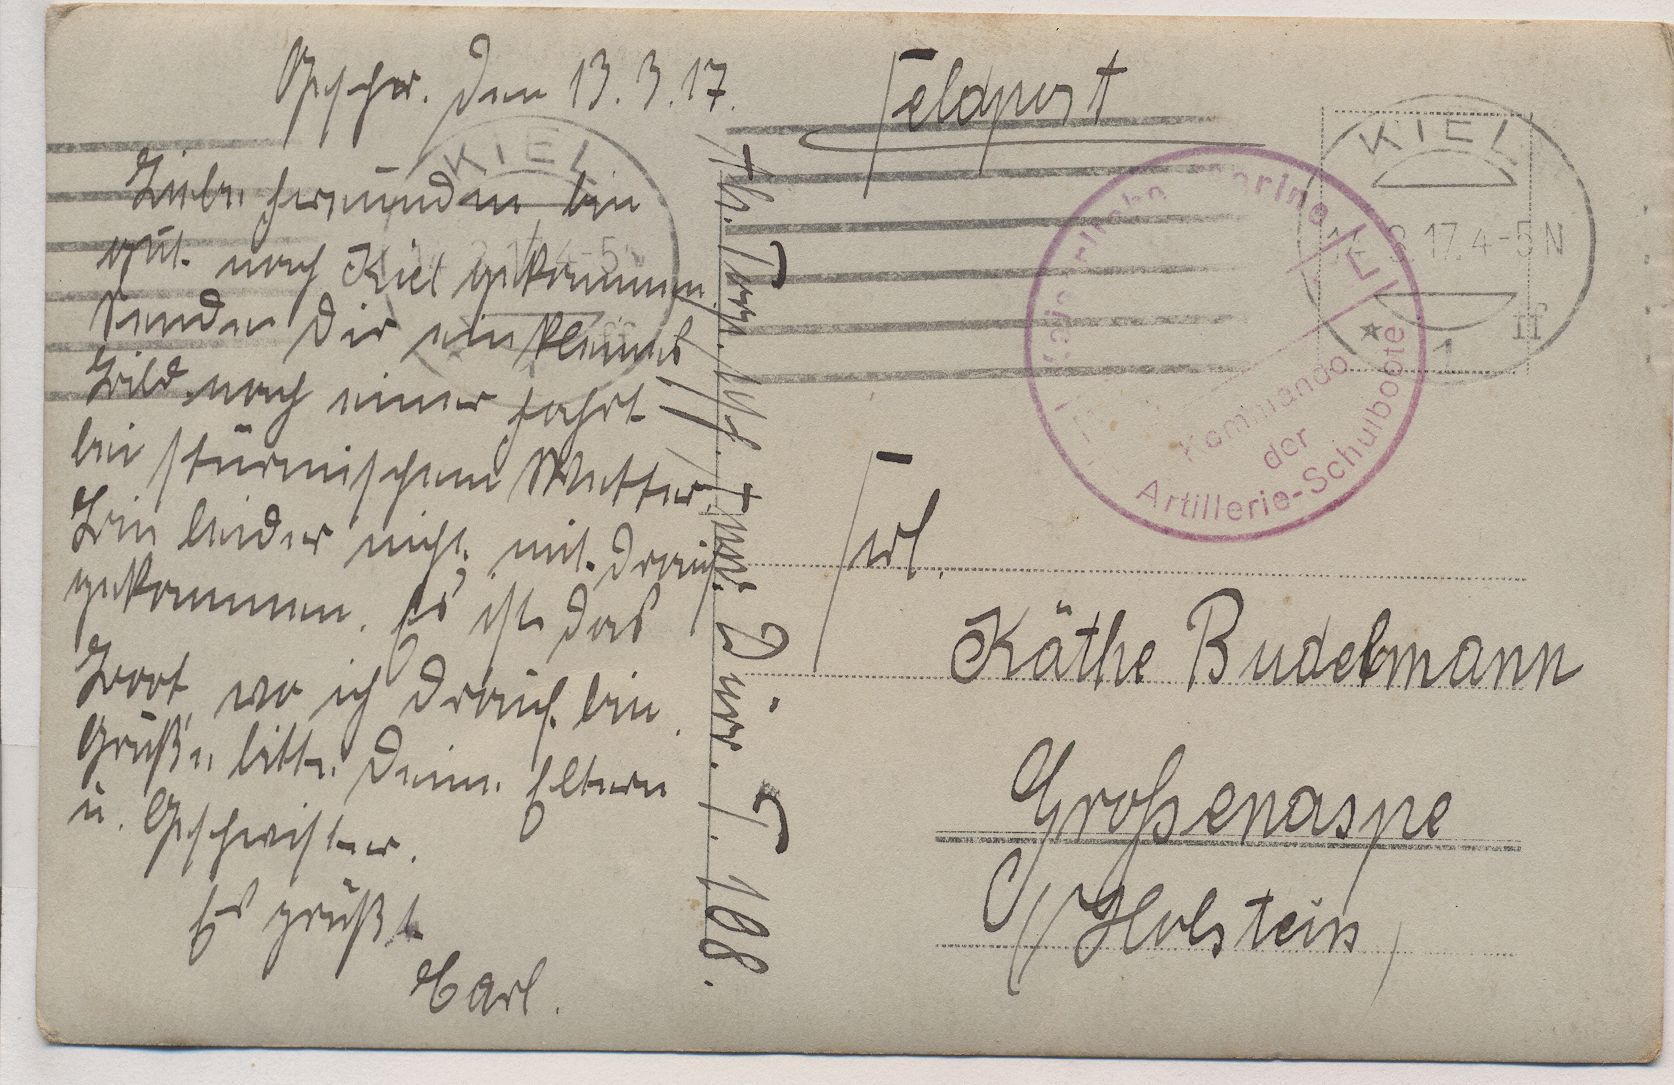 Geschr. den 13.3.17.
Liebe Freundin, bin
gut nach Kiel gekommen.
Sende Dir ein kleines
Bild nach einer Fahrt
bei stürmischem Wetter.
Bin leider nicht mit drauf
gekommen. Es ist das
Boot, wo ich drauf bin.
Grüße bitte Deine Eltern
u. Geschwister.
Es grüßt
Carl.
Feldpost
KIEL
4-5
KIEL
14.3.17.4-5N
* 1 ff
Kaiserliche Marine
Kommando
der
Artillerie-Schulboote
Frl.
Käthe Budelmann
Großenaspe
(Holstein)